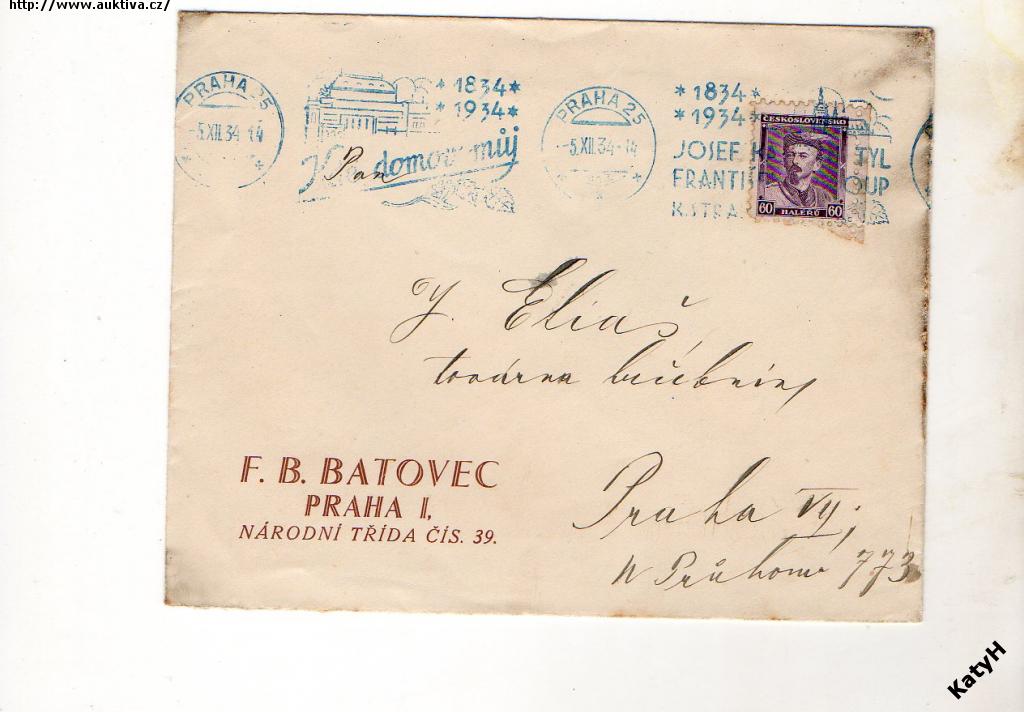 http://www.auktiva.cz/
PRAHA 25
-5.XII.34-14
*1834*
*1934*
Kde domov můj
PRAHA 25
-5.XII.34-14
*1834*
*1934*
JOSEF K TYL
FRANTIŠ OUP
K.STRA
ČESKOSLOVENSKO
60 HALÉRŮ 60
Pan
J. Eliaš
továrna
F. B. BATOVEC
PRAHA I,
NÁRODNÍ TŘÍDA ČÍS. 39.
Praha VII.
V Průhonu 773
KatyH